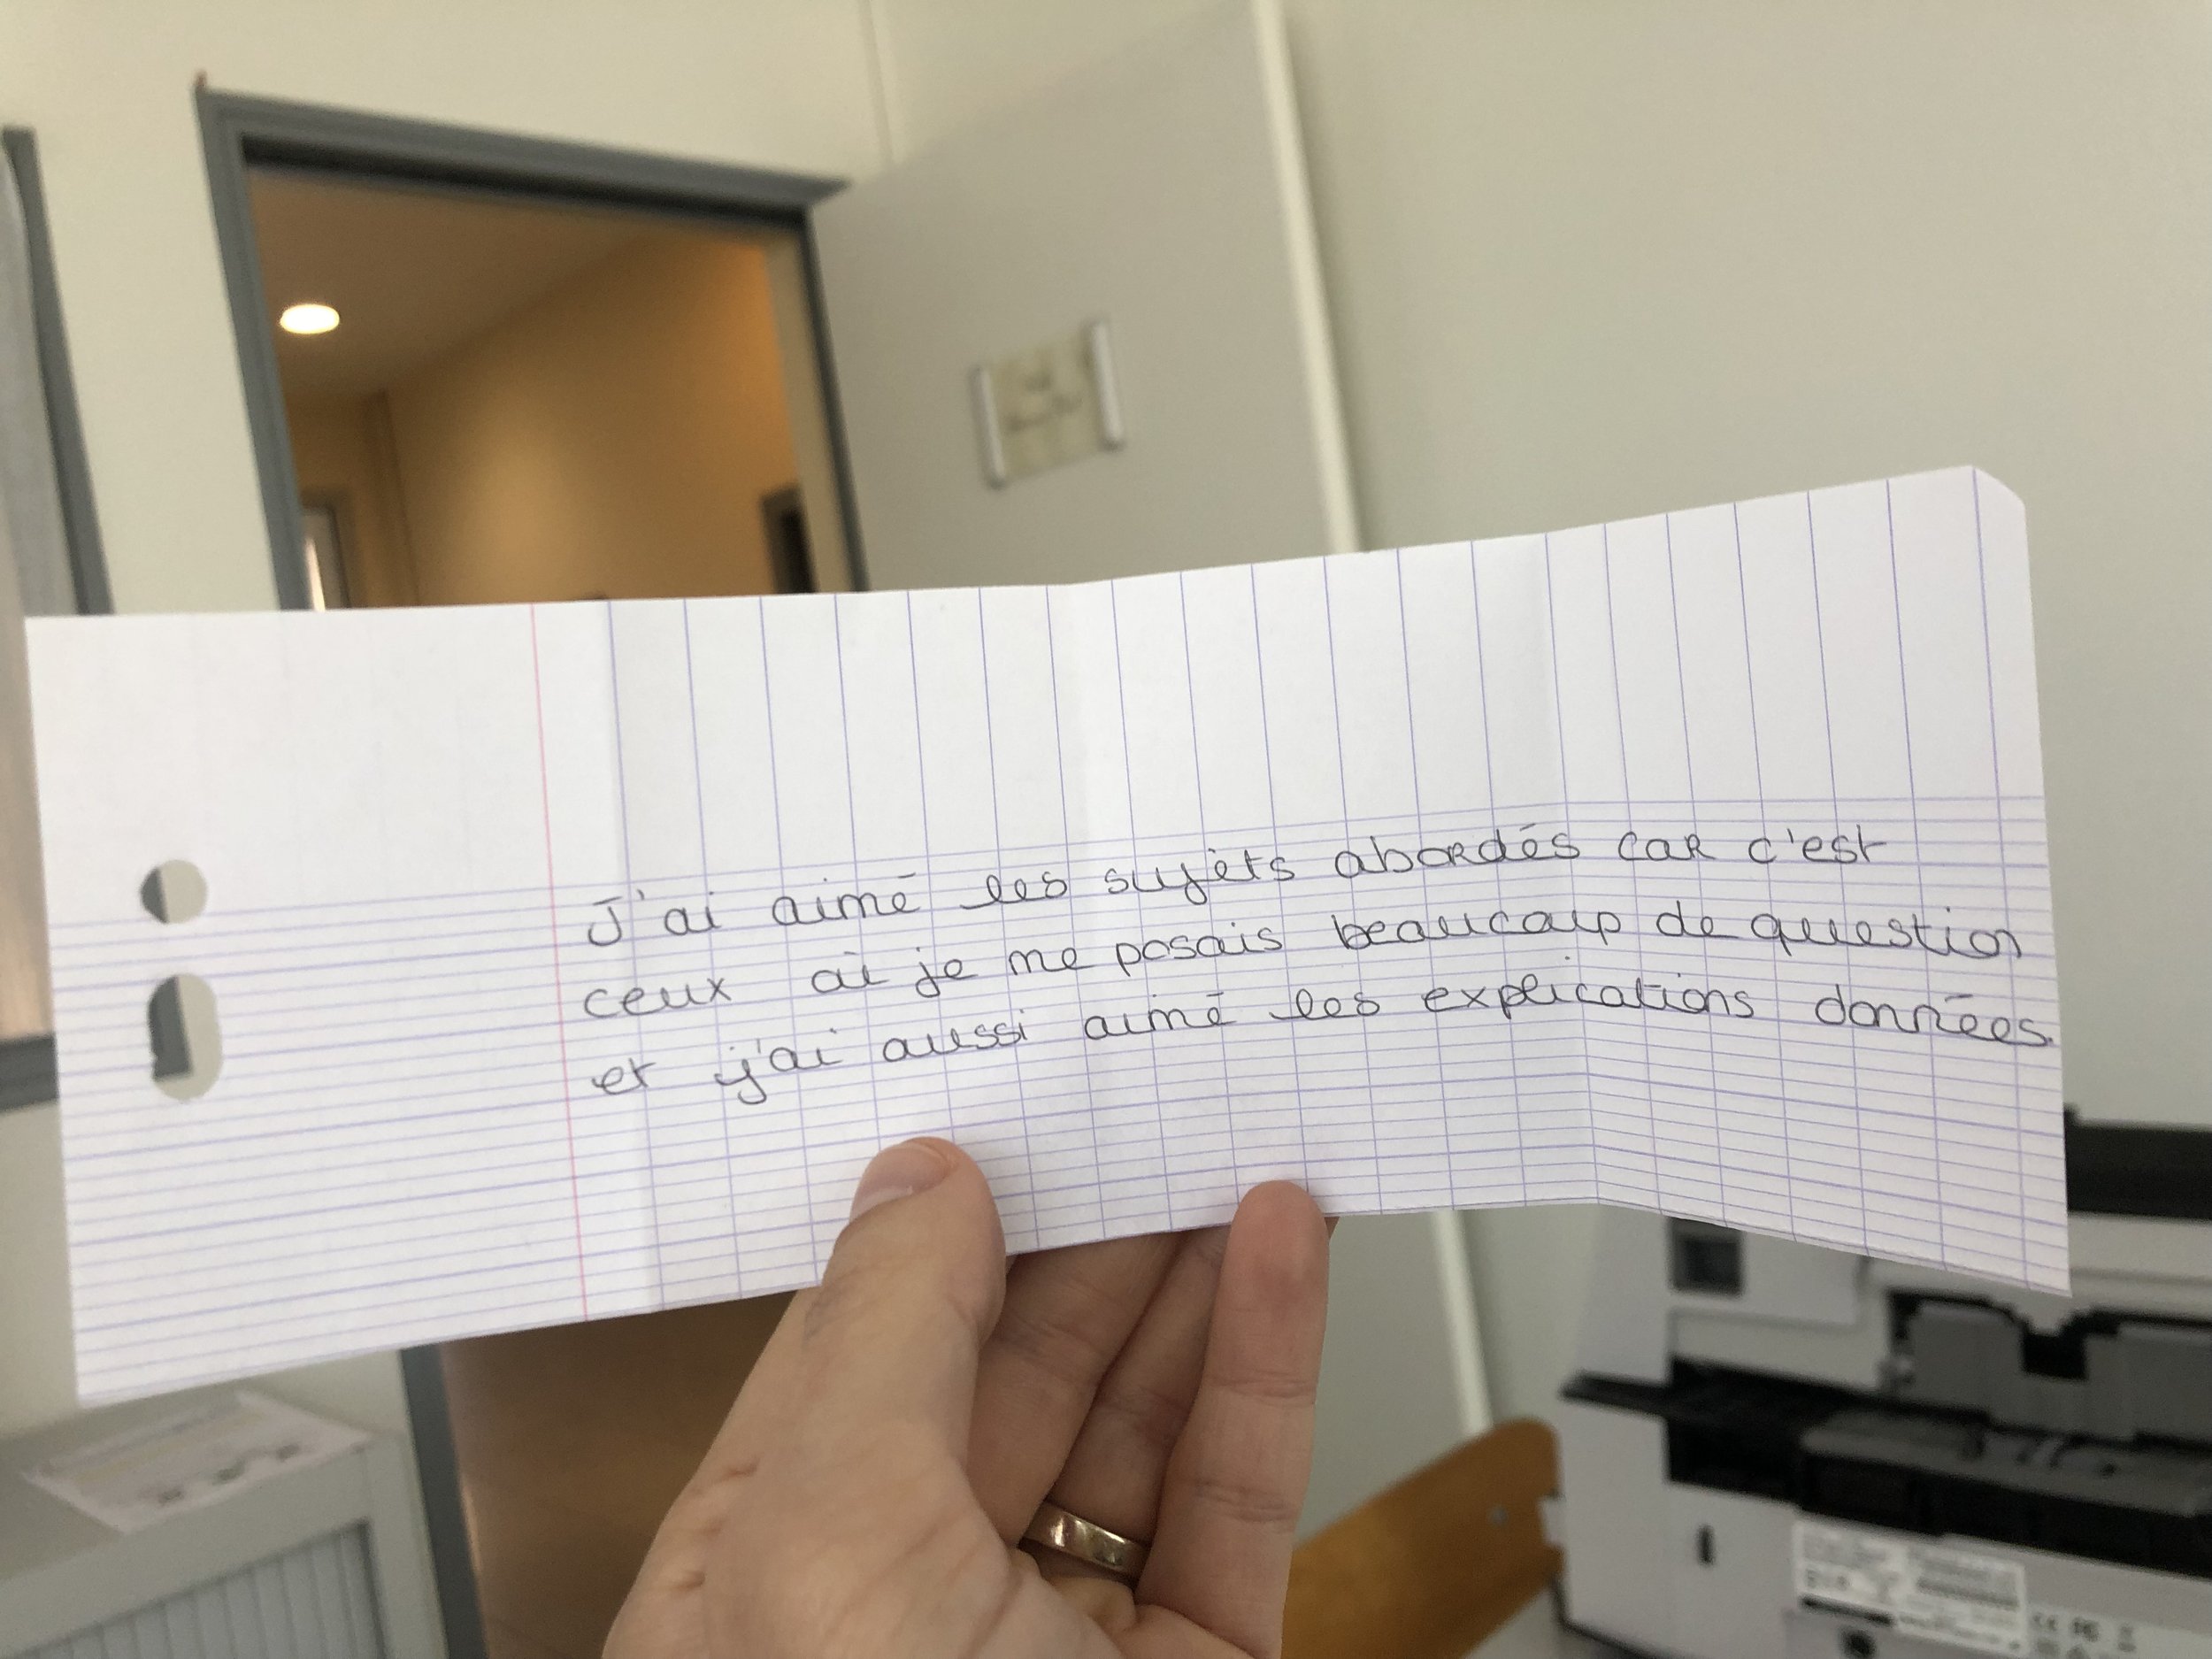 J'ai aimé les sujets abordés car c'est
ceux où je me posais beaucoup de question
et j'ai aussi aimé les explications données.